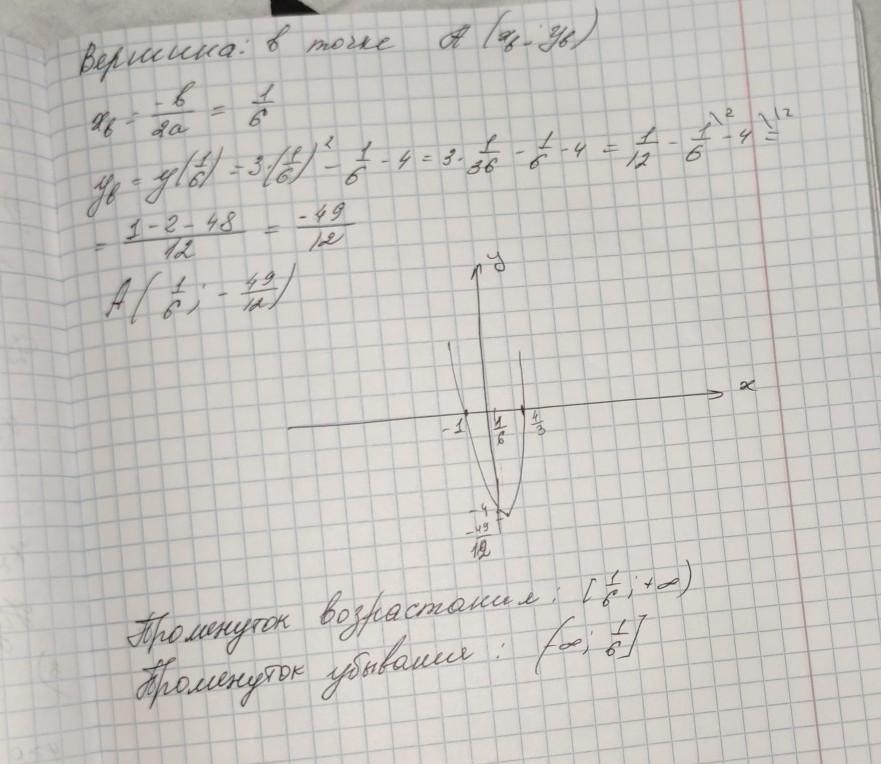 Вершина: в точке A (xв; yв)
xв = -b/2a = 1/6
yв = y(1/6) = 3·(1/6)² - 1/6 - 4 = 3·1/36 - 1/6 - 4 = 1/12 - 1/6\2 - 4\12 =
= 1-2-48/12 = -49/12
A(1/6; -49/12)
y
x
-1 1/6 4/3
-4
-49/12
Променуток возрастания: [1/6; +∞)
Променуток убывания: (-∞; 1/6]